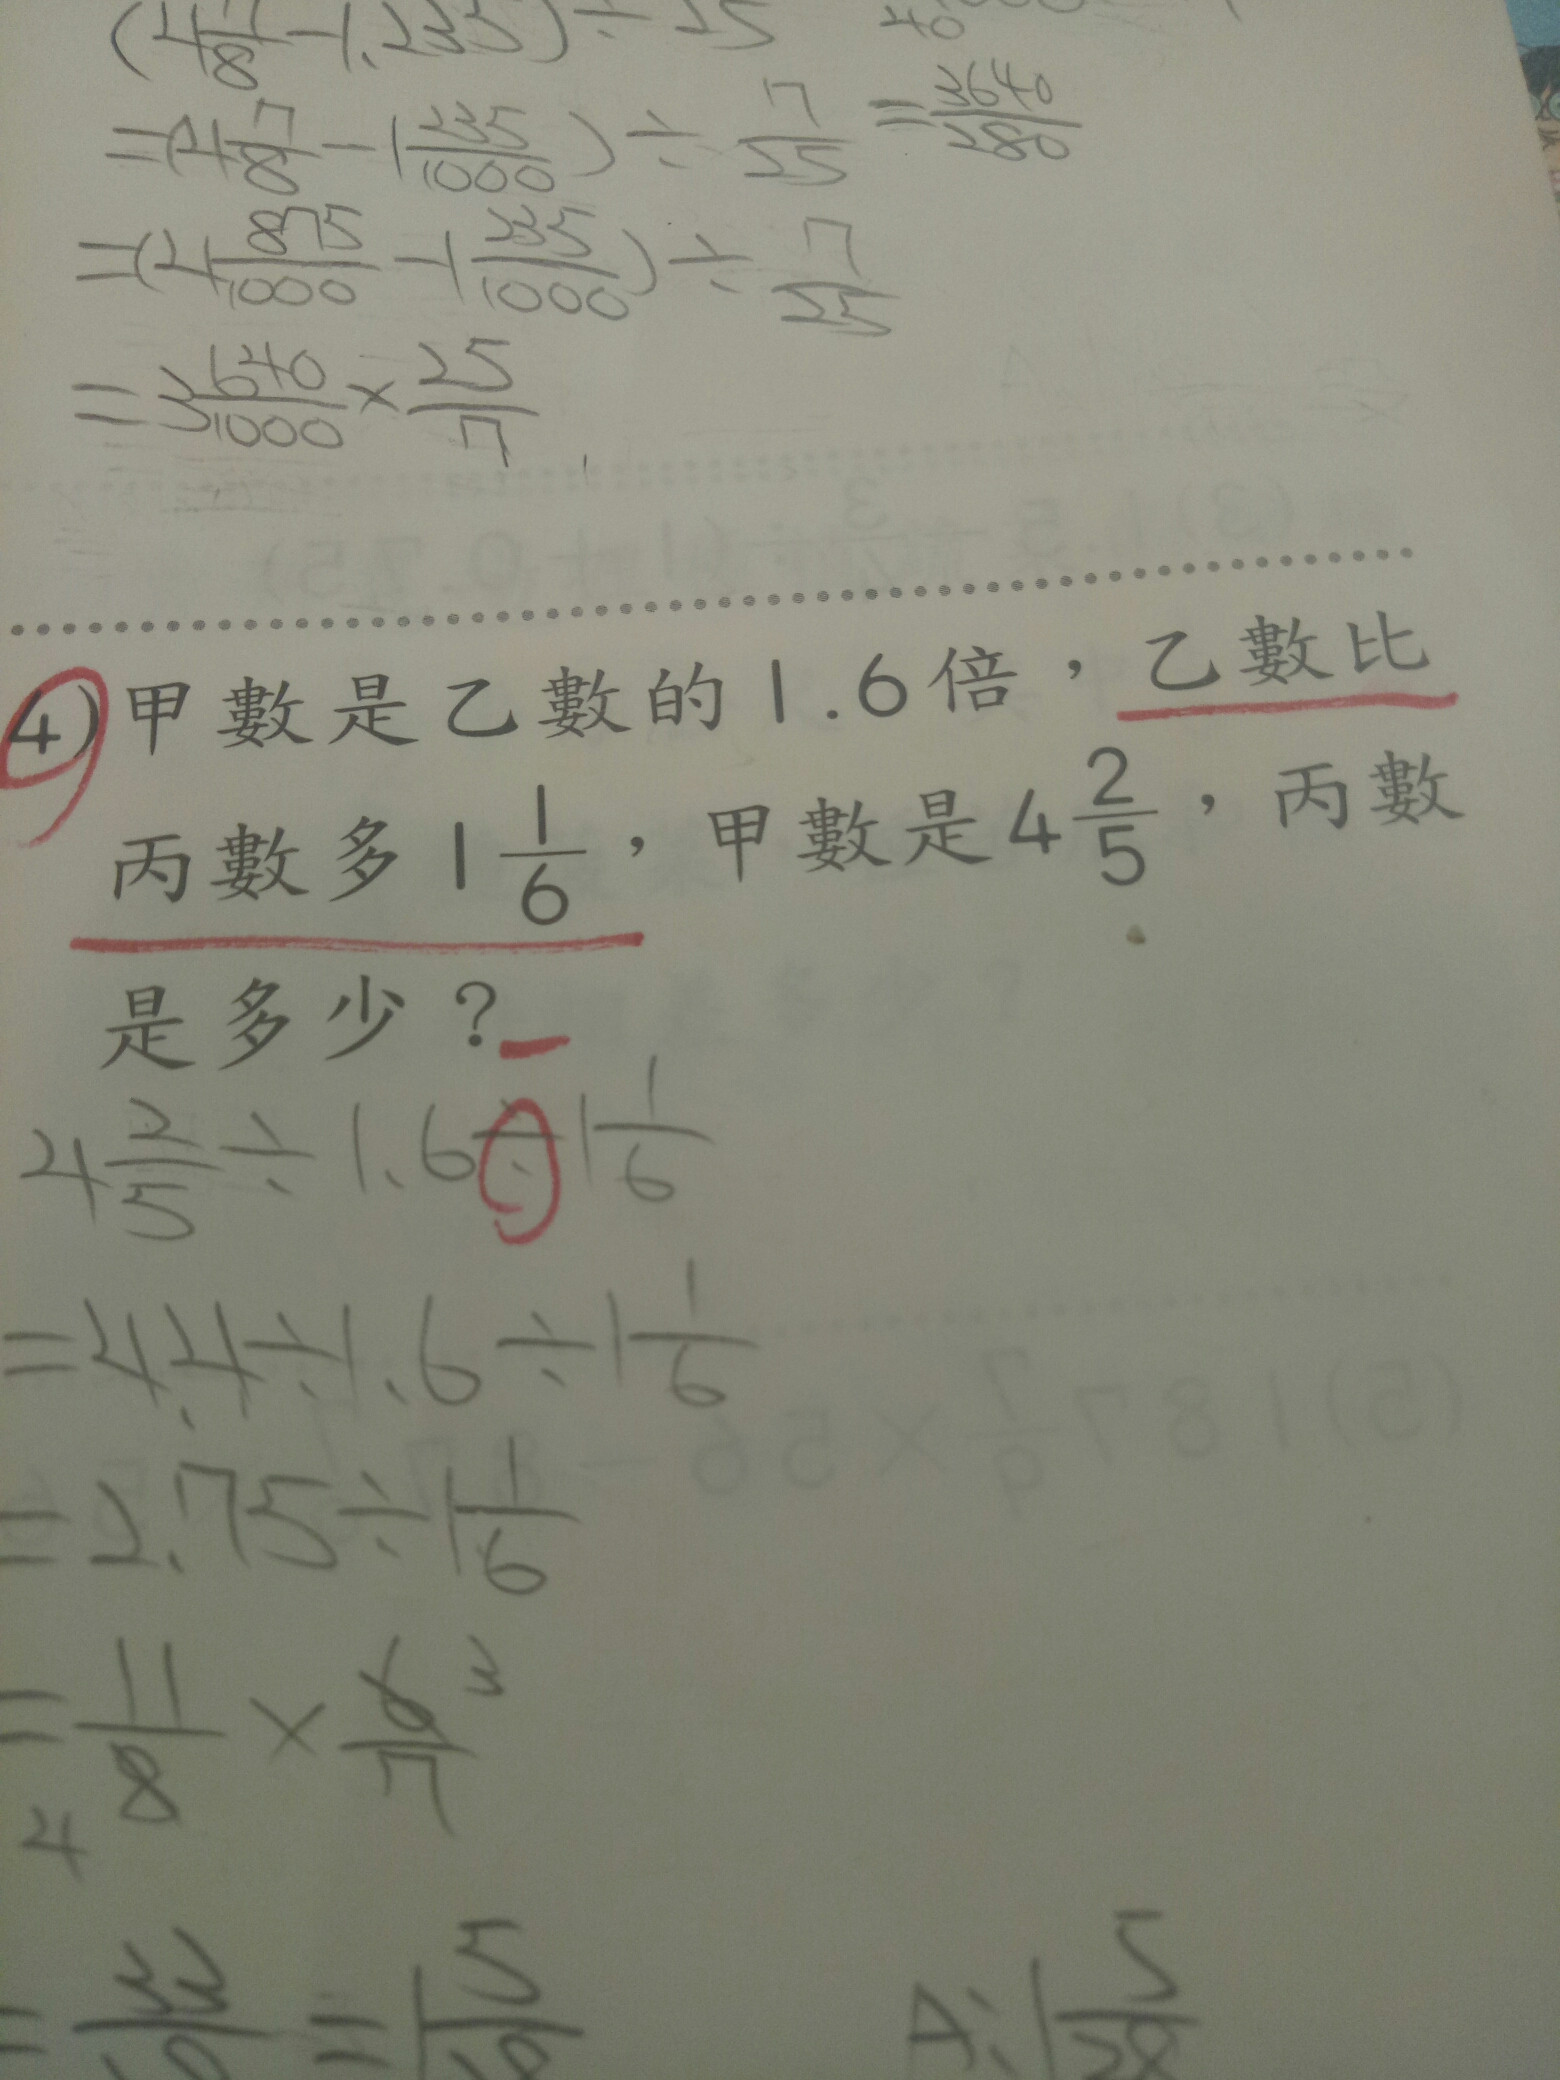 (4 7/8 - 1.235) ÷ 25
40
= (4 7/8 - 1 235/1000) ÷ 7/25
= 3640/280
= (4 875/1000 - 1 235/1000) ÷ 7/25
= 3 640/1000 × 25/7
4) 甲數是乙數的1.6倍，乙數比
丙數多1 1/6，甲數是4 2/5，丙數
是多少？
4 2/5 ÷ 1.6 ÷ 1 1/6
= 4.4 ÷ 1.6 ÷ 1 1/6
= 2.75 ÷ 1 1/6
= 11/8 × 6/7 3
4
= 33/28 = 1 5/28
A: 1 5/28